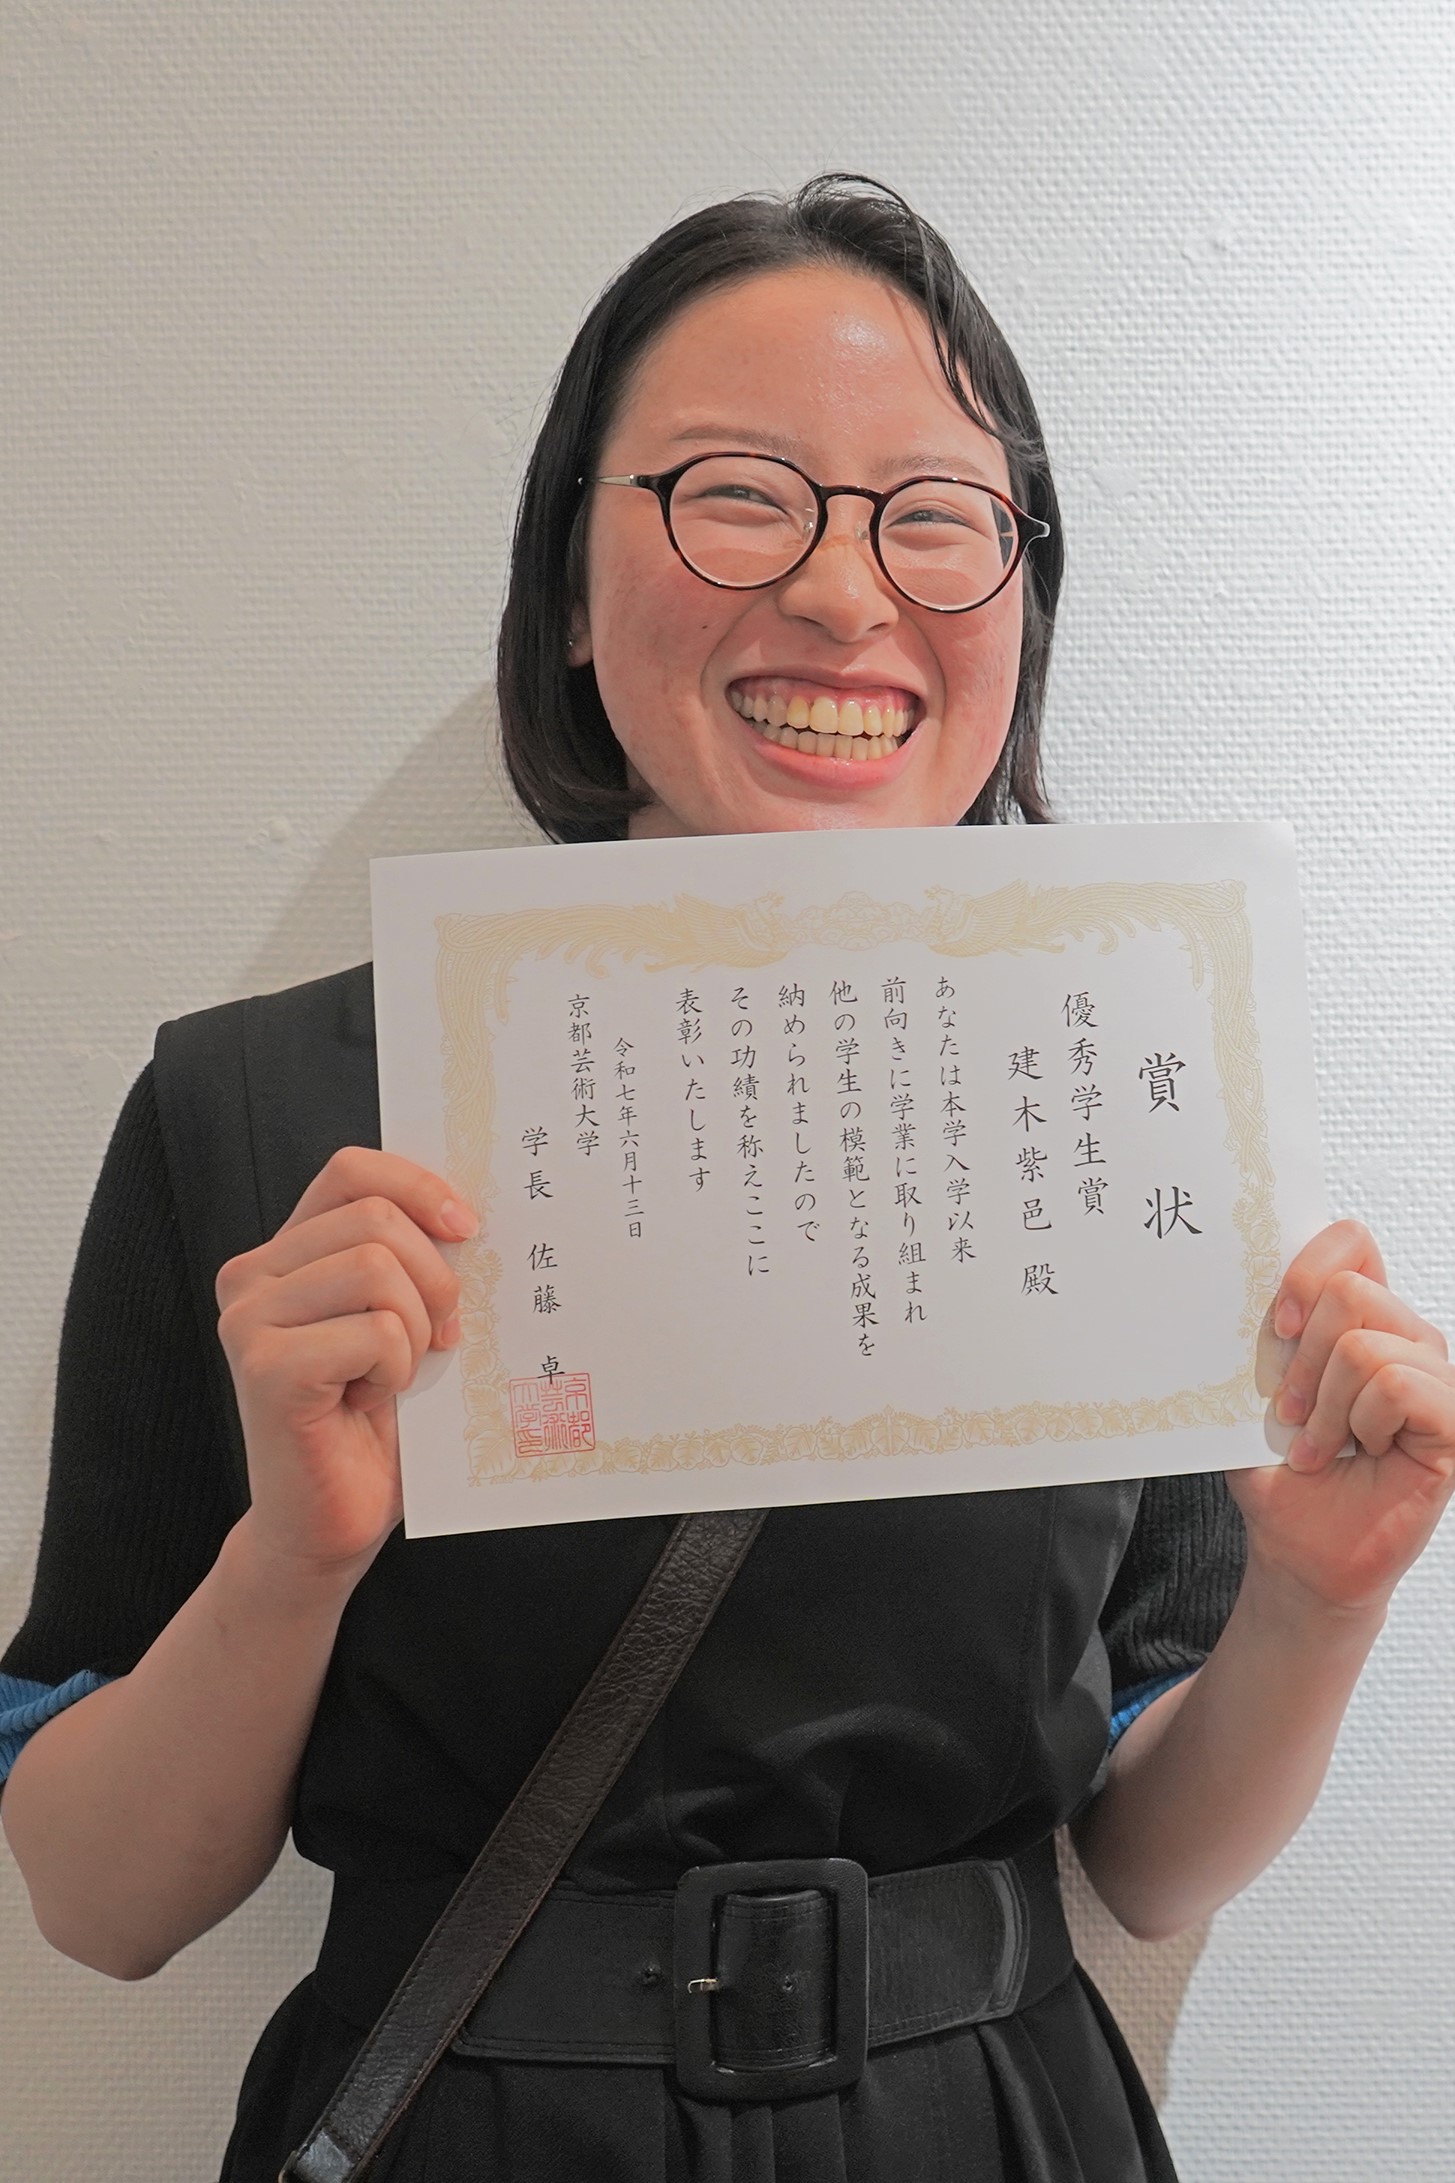 賞状
優秀学生賞
建木紫邑 殿
あなたは本学入学以来
前向きに学業に取り組まれ
他の学生の模範となる成果を
納められましたので
その功績を称えここに
表彰いたします
令和七年六月十三日
京都芸術大学
学長 佐藤 卓
京都芸術大学印